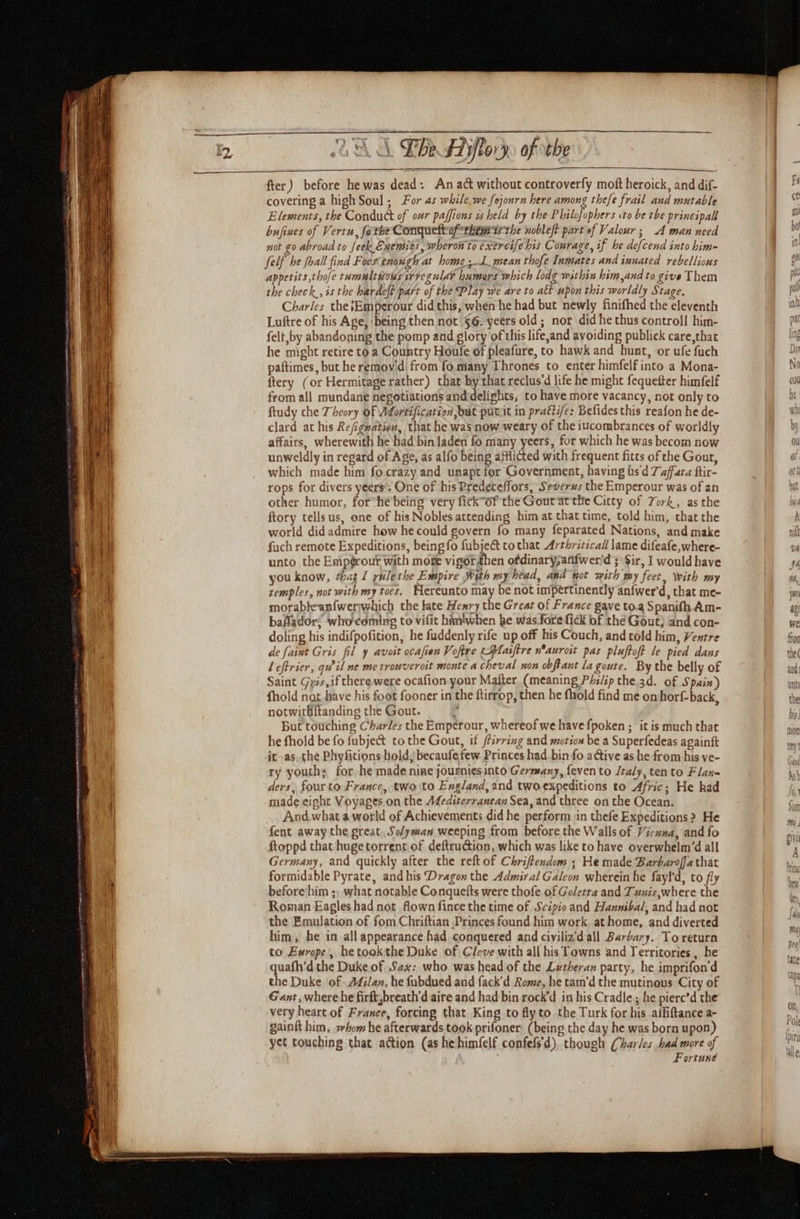 12 The History of the
ster) before he was dead: An act without controversy most heroick, and dis-
covering a high Soul; For as while we sojourn here among these frail and mutable
Elements, the Conduct of our passions is held by the Philosophers to be the principall
busines of Vertu, so the Conquest of them is the noblest part of Valour; A man need
not go abroad to seek Enemies, wheron to exercise his Courage, if he descend into him-
self he shall find Foes enough at home; I mean those Inmates and innated rebellious
appetits, those tumultuous irregular humors which lodg within him, and to give Them
the check, is the hardest part of the Play we are to act upon this worldly Stage.
Charles the Emperour did this, when he had but newly finished the eleventh
Lustre of his Age, being then not 56. yeers old; nor did he thus controll him-
felt, by abandoning the pomp and glory of this life, and avoiding publick care, that
he might retire to a Country House of pleasure, to hawk and hunt, or use such
pastimes, but he remov'd from so many Thrones to enter himself into a Mona-
stery (or Hermitage rather) that by that reclus'd life he might sequester himself
from all mundane negotiations and delights, to have more vacancy, not only to
study the Theory of Mortification, but put it in practise: Besides this reason he de-
clard at his Resignation, that he was now weary of the incombrances of worldly
affairs, wherewith he had bin laden so many yeers, for which he was becom now
unweldly in regard of Age, as also being afflicted with frequent fitts of the Gout,
which made him so crazy and unapt for Government, having us'd Taffata stir-
rops for divers yeers: One of his Predecessors, Severus the Emperour was of an
other humor, for he being very sick of the Gout at the Citty of York, as the
story tells us, one of his Nobles attending him at that time, told him, that the
world did admire how he could govern so many separated Nations, and make
such remote Expeditions, being so subject to that Arthriticall lame disease, where-
unto the Emperour with more vigor then ordinary, answer'd; Sir, I would have
you know, that I rule the Empire with my head, and not with my feet, with my
temples, not with my toes. Hereunto may be not impertinently answer'd, that me-
morable answer which the late Henry the Great of France gave to a Spanish Am-
bassador, who coming to visit him when he was sore sick of the Gout, and con-
doling his indisposition, he suddenly rise up off his Couch, and told him, Ventre
de saint Gris fil y avoit ocasion Vostre Maistre n'auroit pas plustost le pied dans
l estrier, qu'il ne me trouveroit monte a cheval non obstant la goute. By the belly of
Saint Gris, if there were ocasion your Master (meaning Philip the 3d. of Spain)
shold not have his foot sooner in the stirrop, then he shold find me on hors-back,
notwithstanding the Gout.
But touching Charles the Emperour, whereof we have spoken; it is much that
he shold be so subject to the Gout, if stirring and motion be a Supersedeas against
it as the Phyfitions hold, because few Princes had bin so active as he from his ve-
ry youth; for he made nine journies into Germany, seven to Italy, ten to Flan-
ders, four to France, two to England, and two expeditions to Afric; He had
made eight Voyages on the Mediterranean Sea, and three on the Ocean.
And what a world of Achievements did he perform in these Expeditions? He
sent away the great Solyman weeping from before the Walls of Vienna, and so
stoppd that huge torrent of destruction, which was like to have overwhelm'd all
Germany, and quickly after the rest of Christendom; He made Barbarossa that
formidable Pyrate, and his Dragon the Admiral Galeon wherein he sayl'd, to fly
before him; what notable Conquests were those of Goletta and Tunis, where the
Roman Eagles had not flown since the time of Scipio and Hannibal, and had not
the Emulation of som Christian Princes found him work at home, and diverted
him, he in all appearance had conquered and civiliz'd all Barbary. To return
to Europe, he took the Duke of Cleve with all his Towns and Territories, he
quash'd the Duke of Sax: who was head of the Lutheran party, he imprison'd
the Duke of Milan, he subdued and sack'd Rome, he tam'd the mutinous City of
Gant, where he first breath'd aire and had bin rock'd in his Cradle; he pierc'd the
very heart of France, forcing that King to fly to the Turk for his assistance a-
gainst him, whom he afterwards took prisoner (being the day he was born upon)
yet touching that action (as he himself confess'd) though Charles had more of
Fortune